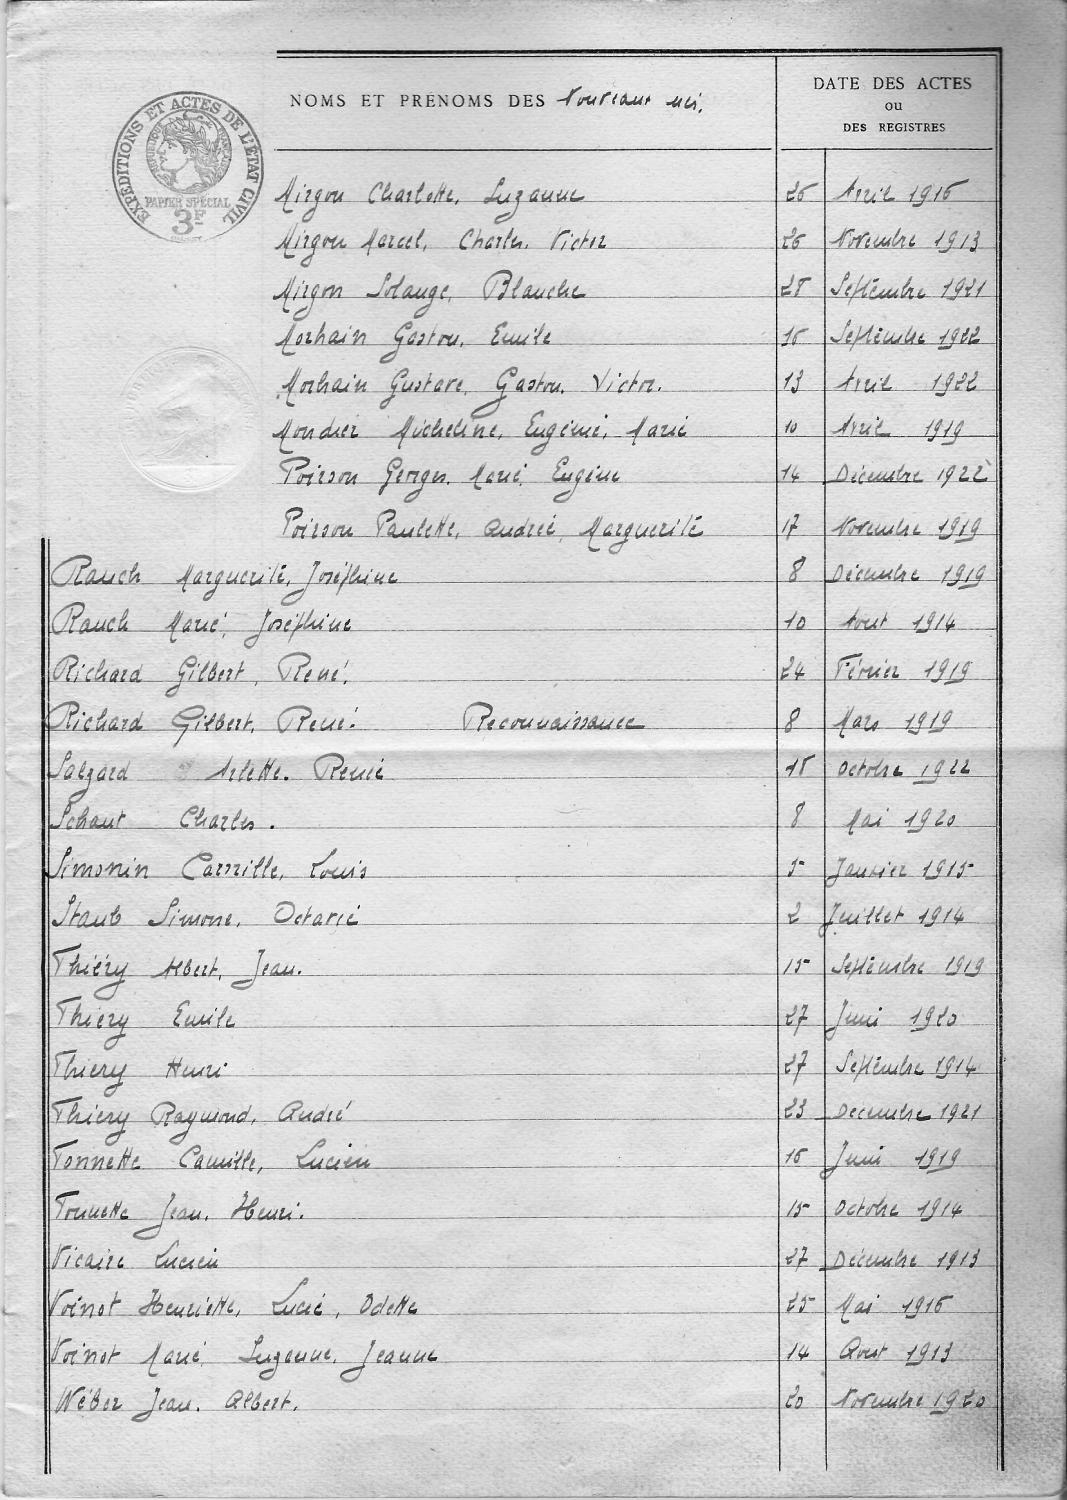 EXPÉDITIONS ET ACTES DE L'ÉTAT CIVIL
RÉPUBLIQUE FRANÇAISE
PAPIER SPÉCIAL
3F
NOMS ET PRÉNOMS DES Nouveaux nés.
DATE DES ACTES
ou
DES REGISTRES
Mirgon Charlotte, Suzanne 26 Avril 1916
Mirgon Marcel, Charles, Victor 26 Novembre 1913
Mirgon Solange, Blanche 28 Septembre 1921
Morhain Gaston, Emile 16 Septembre 1922
Morhain Gustave, Gaston, Victor. 13 Avril 1922
Mondier Micheline, Eugénie, Marie 10 Avril 1919
Poirson Georges, Marie, Eugène 14 Décembre 1922
Poirson Paulette, Andrée, Marguerite 17 Novembre 1919
Rauch Marguerite, Joséphine 8 Décembre 1919
Rauch Marie, Joséphine 10 Aout 1914
Richard Gilbert, René. 24 Février 1919
Richard Gilbert, René. Reconnaissance 8 Mars 1919
Salzard Arlette. Renée 18 Octobre 1922
Schaut Charles. 8 Mai 1920
Simonin Camille, Louis 5 Janvier 1915
Staub Simone, Octavie 2 Juillet 1914
Thiéry Albert, Jean. 15 Septembre 1919
Thiéry Emile 27 Juin 1920
Thiery Henri 27 Septembre 1914
Thiéry Raymond, André 23 Décembre 1921
Tonnette Camille, Lucien 16 Juin 1919
Tonnette Jean, Henri. 15 Octobre 1914
Vicaire Lucien 27 Décembre 1913
Voinot Henriette, Lucie, Odette 25 Mai 1916
Voinot Marie, Suzanne, Jeanne 14 Aout 1913
Wéber Jean, Albert. 20 Novembre 1920